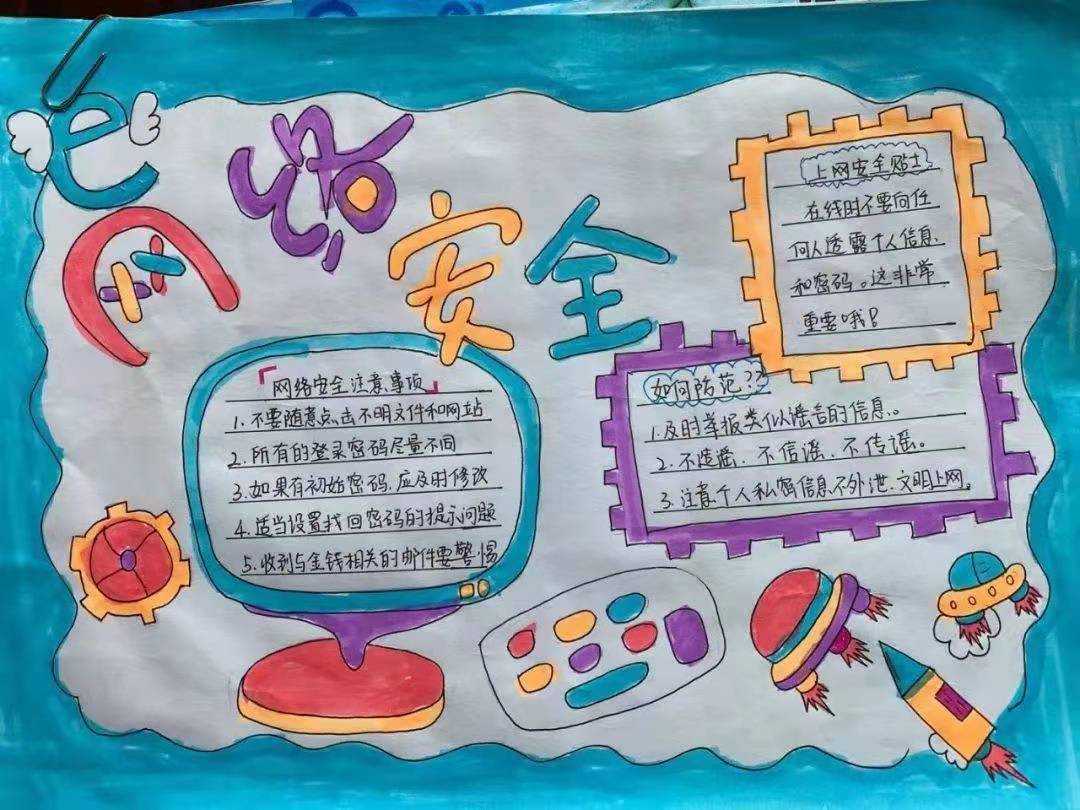 e
网络安全
上网安全贴士
在线时不要向任
何人透露个人信息
和密码。这非常
重要哦！
网络安全注意事项
1.不要随意点击不明文件和网站
2.所有的登录密码尽量不同
3.如果有初始密码,应及时修改
4.适当设置找回密码的提示问题
5.收到与金钱相关的邮件要警惕
如何防范??
1.及时举报类似谣言的信息。
2.不造谣、不信谣、不传谣。
3.注意个人私密信息不外泄,文明上网。